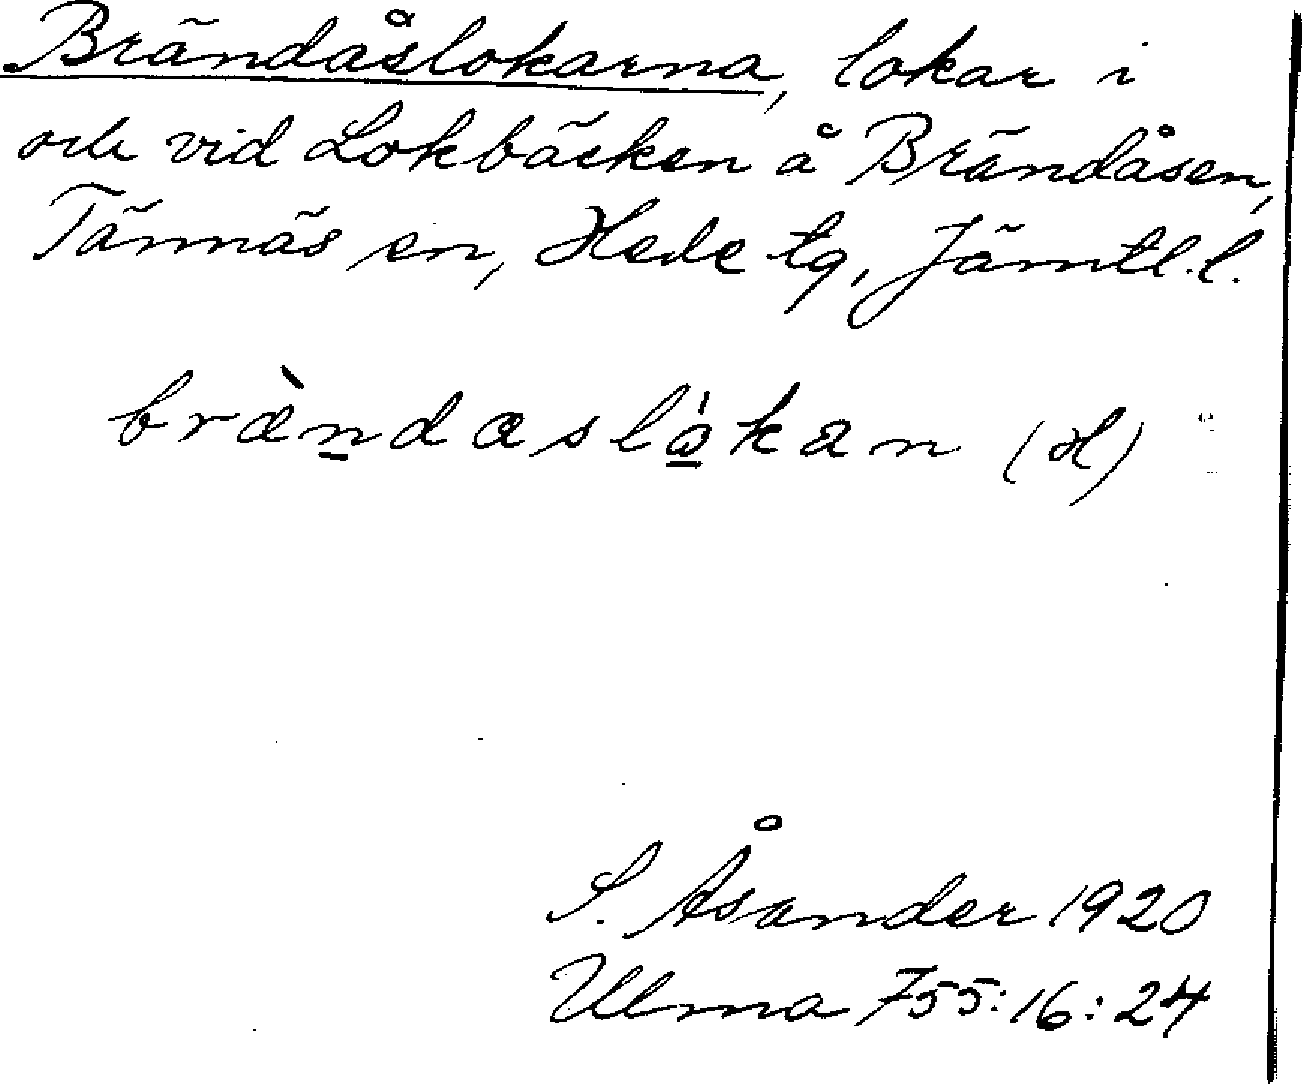 Brändåslokarna, lokar i
och vid Lokbäcken å Brändåsen,
Tännäs sn, Hede tg, Jämtl. l.
brændaslåkan (H)
S. Åsander 1920
Ulma 755:16:24